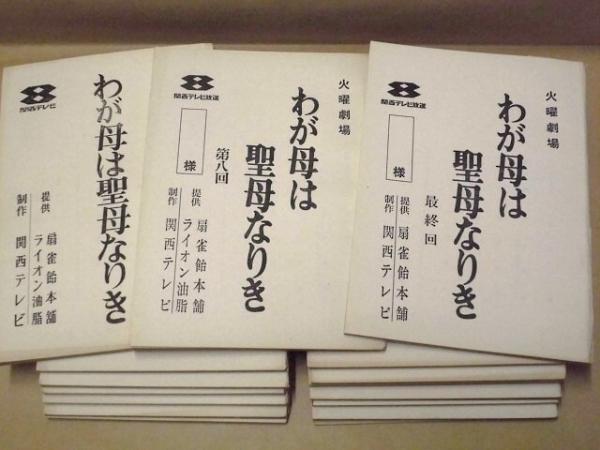 関西テレビ
わが母は聖母なりき
提供 扇雀飴本舗
ライオン油脂
制作 関西テレビ
関西テレビ放送
火曜劇場
わが母は
聖母なりき
第八回
様
提供 扇雀飴本舗
ライオン油脂
制作 関西テレビ
関西テレビ放送
火曜劇場
わが母は
聖母なりき
最終回
様
提供 扇雀飴本舗
制作 関西テレビ